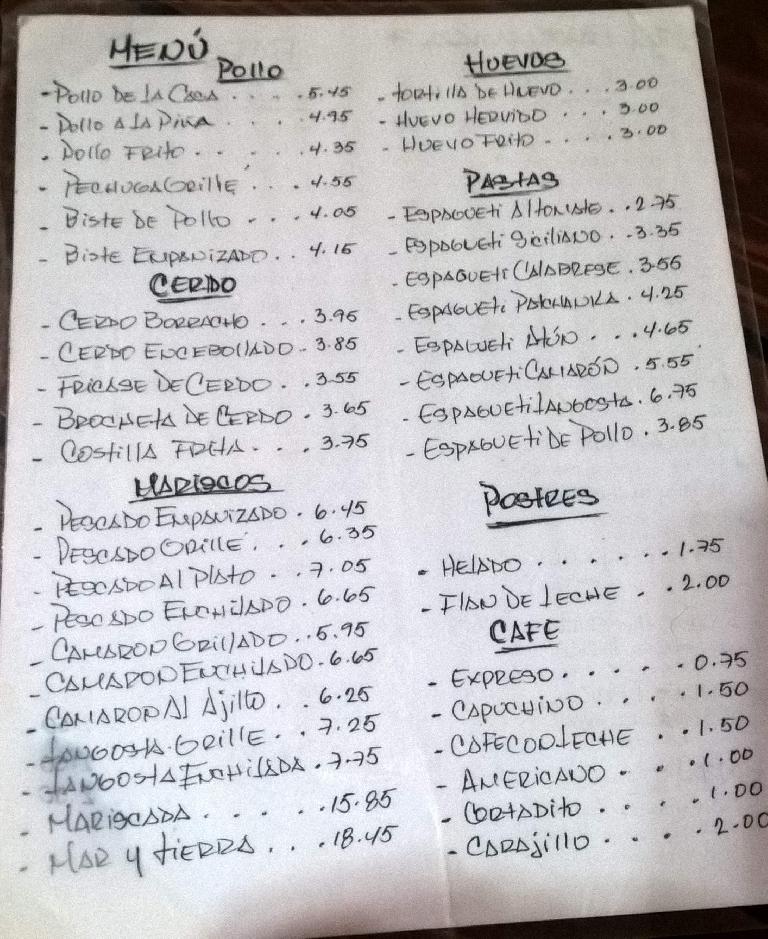 MENÚ
POLLO
- POLLO DE LA CASA . . . . 5.45
- POLLO A LA PIÑA . . . 4.95
- POLLO FRITO . . . . . 4.35
- PECHUGA GRILLE . . . 4.55
- BISTE DE POLLO . . . 4.05
- BISTE EMPANIZADO . . 4.15
CERDO
- CERDO BORRACHO . . . 3.95
- CERDO ENCEBOLLADO . 3.85
- FRICASE DE CERDO . . 3.55
- BROCHETA DE CERDO . 3.65
- COSTILLA FRITA . . . 3.75
MARISCOS
- PESCADO EMPANIZADO . 6.45
- PESCADO GRILLE . . . 6.35
- PESCADO AL PLATO . . 7.05
- PESCADO ENCHILADO . 6.65
- CAMARON GRILLADO . . 5.95
- CAMARON ENCHILADO . 6.65
- CAMARON AL AJILLO . . 6.25
- LANGOSTA GRILLE . . 7.25
- LANGOSTA ENCHILADA . 7.75
- MARISCADA . . . . . 15.85
- MAR Y TIERRA . . . . 18.45
HUEVOS
- TORTILLA DE HUEVO . . . 3.00
- HUEVO HERVIDO . . . 3.00
- HUEVO FRITO . . . . 3.00
PASTAS
- ESPAGUETI AL TOMATE . . 2.75
- ESPAGUETI SICILIANO . . 3.35
- ESPAGUETI CALABRESE . 3.55
- ESPAGUETI . 4.25
- ESPAGUETI ATÚN . . . 4.65
- ESPAGUETI CAMARÓN . 5.55
- ESPAGUETI LANGOSTA . 6.75
- ESPAGUETI DE POLLO . 3.85
POSTRES
- HELADO . . . . . . . 1.75
- FLAN DE LECHE . . 2.00
CAFE
- EXPRESO . . . . . 0.75
- CAPUCHINO . . . . 1.50
- CAFE CON LECHE . . 1.50
- AMERICANO . . . 1.00
- CORTADITO . . . . 1.00
- CARAJILLO . . . . 2.00